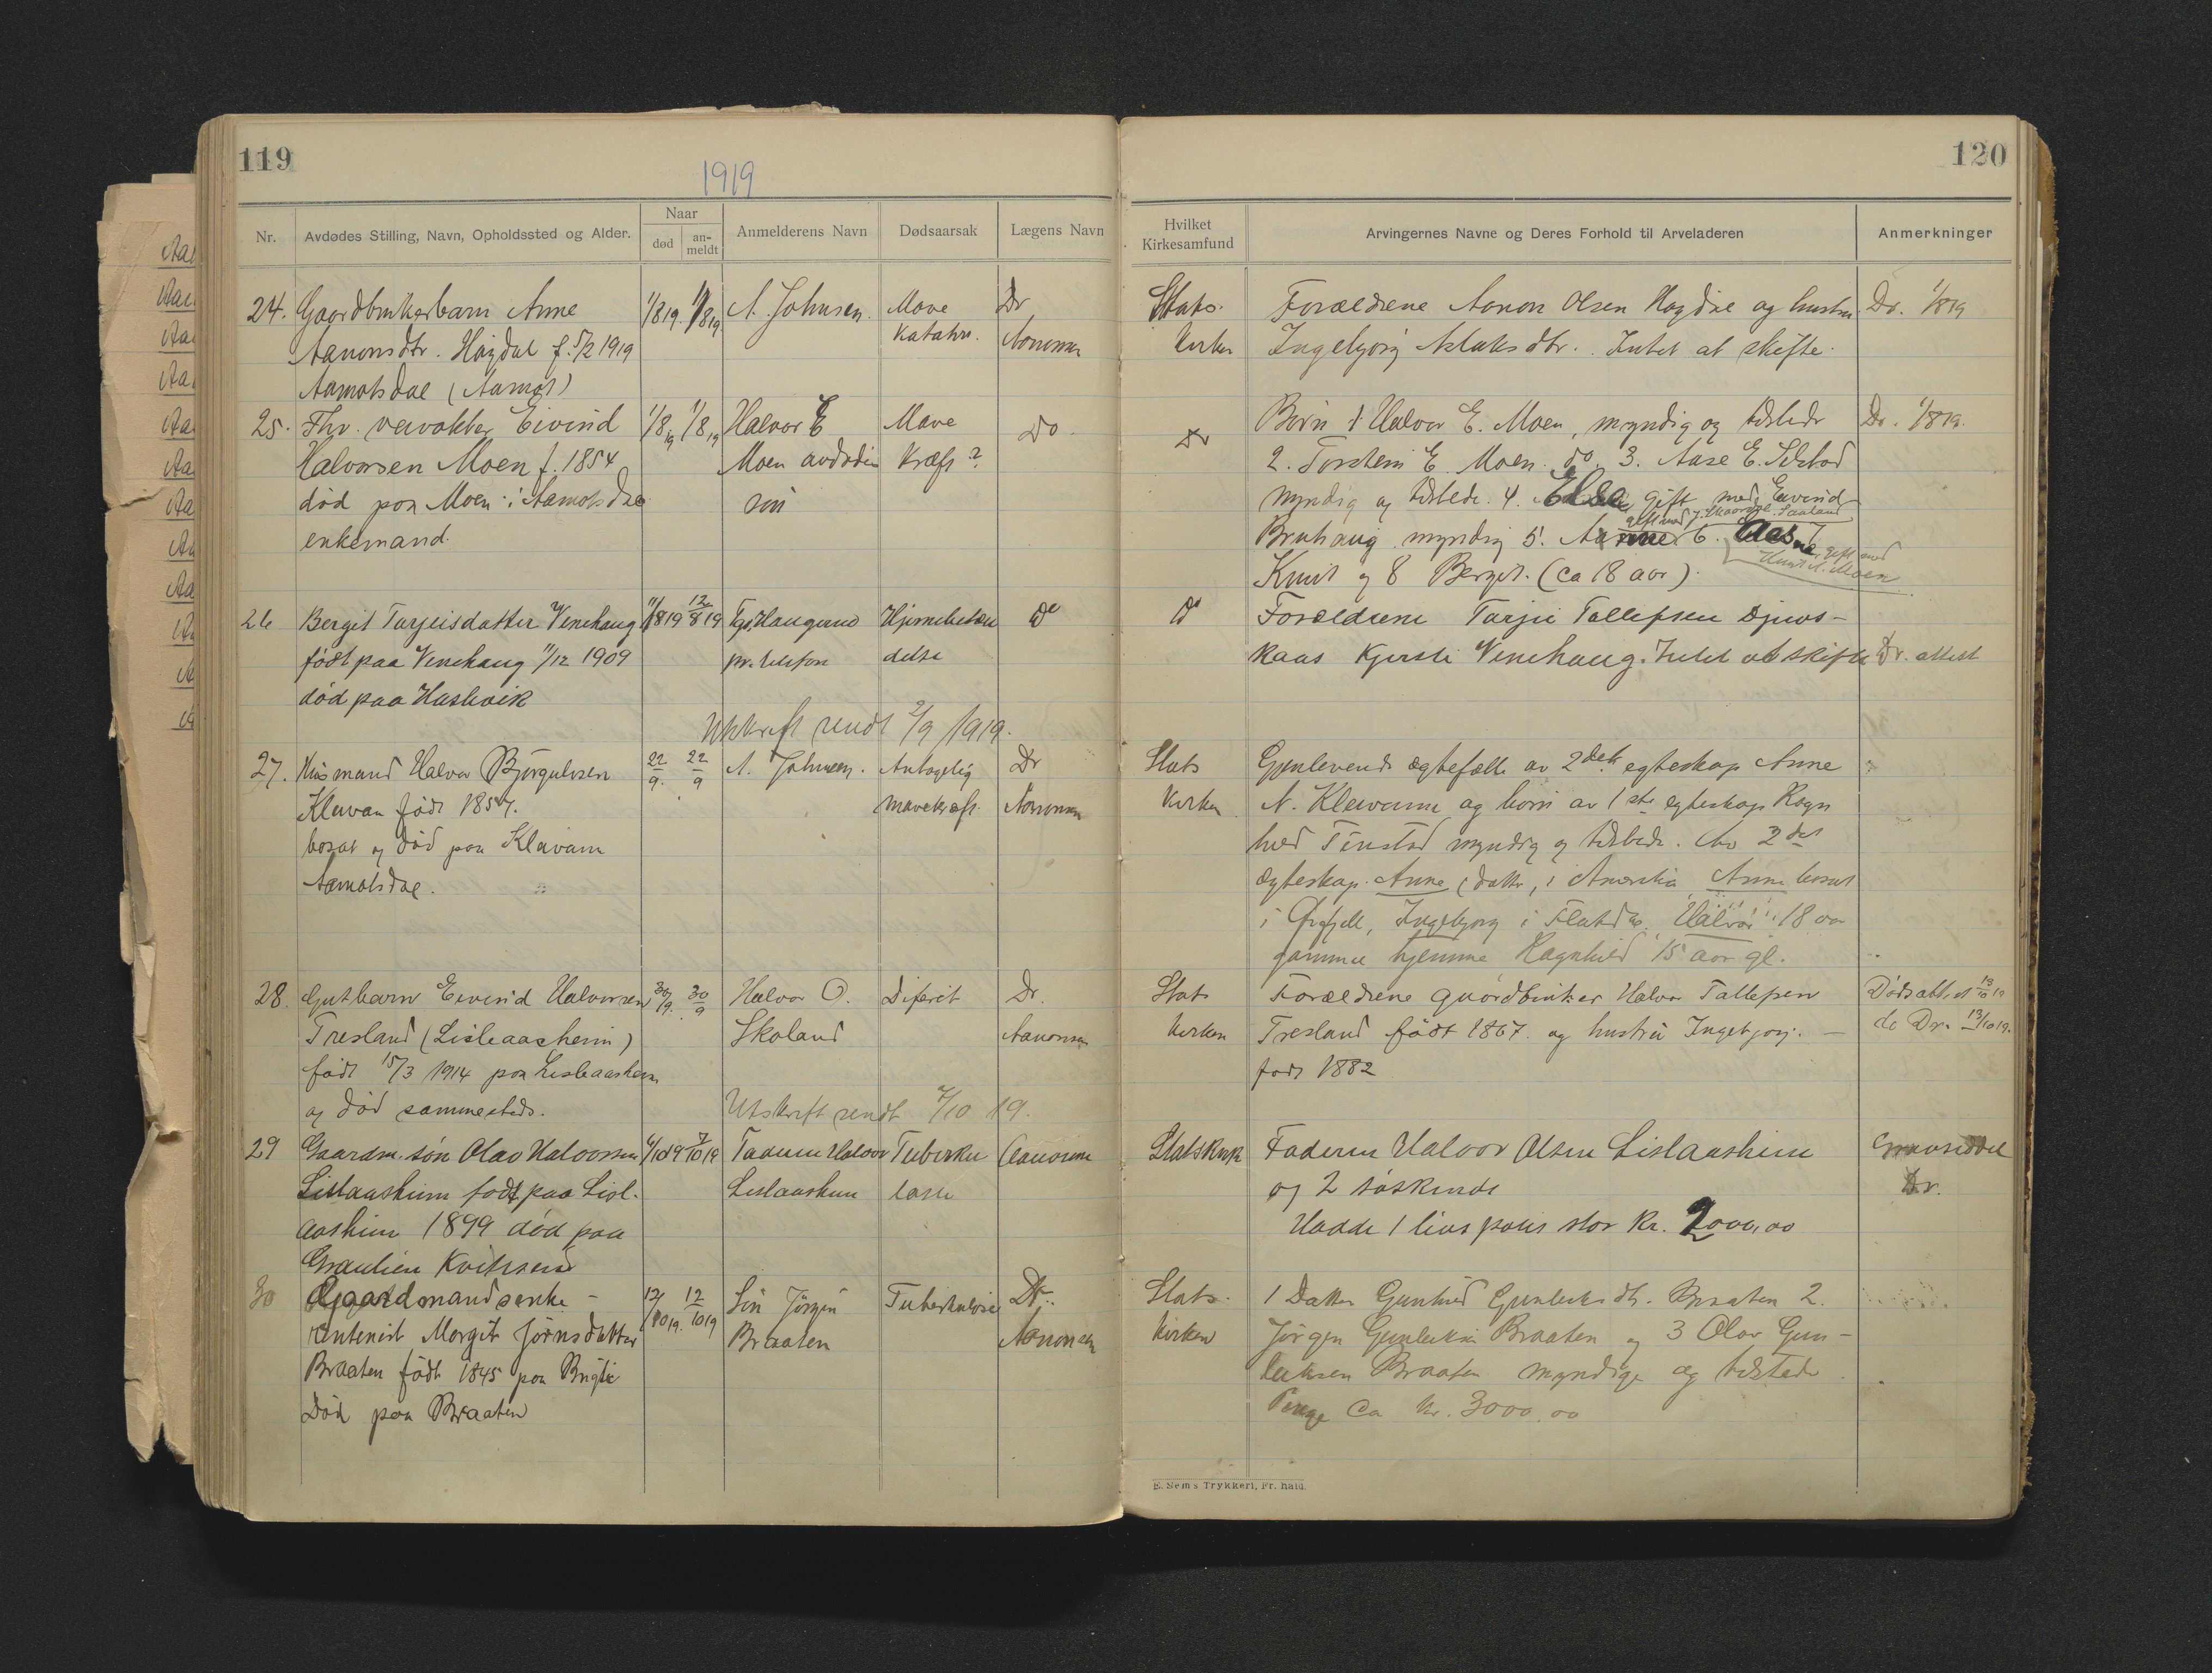 119
1919
120
Nr.
Avdødes Stilling, Navn, Opholdssted og Alder.
Naar
død
an-
meldt
Anmelderens Navn
Dødsaarsak
Lægens Navn
Hvilket
Kirkesamfund
Arvingernes Navne og Deres Forhold til Arveladeren
Anmerkninger
24. Gaardbrukerbarn Anne
Aanonsdtr. Høgdal f. 5/2 1919
Aamotsdal (Aamot)
1/8 19. 1/8 19
A. Johnsen.
Mave
Katahr.
Dr
Aanonsen
Stats
kirken
Forældrene Aanon Olsen Høgdal og hustru
Ingebjørg Aslaksdtr. Intet at skifte.
Dr. 1/8 19
25. Fhv. Eivind
Halvorsen Moen f. 1854
død paa Moen i Aamotsdal
enkemand.
1/8 19 1/8 19
Halvor E
Moen avdødes
søn
Mave
Kræft?
Do
Do
Børn 1. Halvor E. Moen, myndig og tilstede
2. Torstein E. Moen do 3. Aase E.
myndig og tilstede. 4. gift med Eivind
gift med J. Saaland
Bruhaug myndig 5. Anne 6. 7
gift med
Moen
Knut og 8 Berget. (ca 18 aar).
Dr. 1/8 19.
26 Bergit Tarjeisdatter Vinehaug
født paa Vinehaug 11/12 1909
død paa Haslevik
11/8 19 12/8 19
Haugerud
pr. telefon
Hjernebetæn
delse
Do
Do
Forældrene Tarjei Tallefsen Djuvs-
kaas Kjersti Vinehaug. Intet at skifte
Dr. attest
Utskrift sendt 2/9 1919.
27. Husmand Halvor Bjørgulvsen
Klevan født 1857.
bosat og død paa Klevann
Aamotsdal.
22/9. 22/9
A. Johnsen.
Antagelig
mavekræft.
Dr
Aanonsen
Stats
kirken
Gjenlevende ægtefælle av 2det egteskap Anne
N. Klevann og børn av 1ste egteskap Ragn
hild Tinstad myndig og tilstede. Av 2det
ægteskap. Anne (datter, i Amerika, Anne bosat
i , Ingebjorg i Flatdal, Halvor 18 aar
gammel hjemme Ragnhild 15 aar gl.
28. Gutbarn Eivind Halvorsen
Tresland (Lisleaasheim)
født 15/3 1914 paa Lisleaasheim
og død sammesteds.
30/9. 30/9
Halvor O.
Skoland
Diferit
Dr.
Aanonsen
Stats
kirken
Forældrene gaardbruker Halvor Tallefsen
Tresland født 1867. og hustru Ingebjorg. —
født 1882
Dødsattest 13/10 19
do Dr. 13/10 19.
Utskrift sendt 7/10 19.
29 Gaardm. søn Olav Halvorsen
Lislaasheim født paa Lisl-
aasheim 1899 død paa
Graulien Kviteseid
6/10 19 7/10 19
Faderen Halvor
Lislaasheim
Tuberku
lose
Aanonsen
Statskirk
Faderen Halvor Olsen Lislaasheim
og 2 søskende
Hadde 1 livspolis stor kr. 2000,00
Gravseddel
Dr.
30 Gaardmandsenke -
rentenist Margit Jørnsdatter
Braaten født 1845 paa
Død paa Braaten
12/10 19. 12/10 19
Søn Jørgen
Braaten
Tuberkulose
Dr.
Aanonsen
Stats-
kirken
1 Datter Gunhild Gunleiksdt. Braaten 2.
Jørgen Gunleiksen Braaten og 3 Olav Gun-
leiksen Braaten myndige og tilstede.
Penge Ca kr. 3000.00
E. Sem's Trykkeri, Fr. hald.